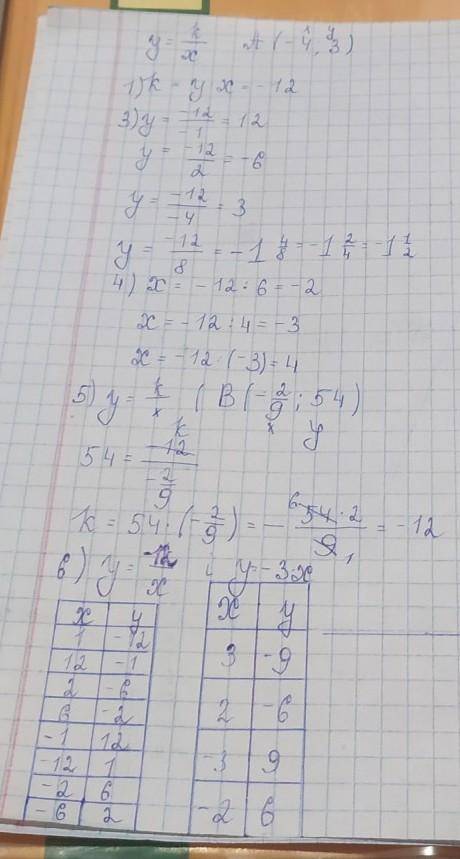 y = k/x A (-4, 3)
x y
1) k = y x = -12
3) y = -12/-1 = 12
y = -12/2 = -6
y = -12/-4 = 3
y = -12/8 = -1 4/8 = -1 2/4 = -1 1/2
4) x = -12 : 6 = -2
x = -12 : 4 = -3
x = -12 : (-3) = 4
5) y = k/x ( B (-2/9 ; 54)
x y
54 = k/(-2/9)
k = 54 · (-2/9) = - 54 · 2/9 = -12
6 1
6) y = -12/x i y = -3x
x y
1 -12
12 -1
2 -6
6 -2
-1 12
-12 1
-2 6
-6 2
x y
3 -9
2 -6
-3 9
-2 6